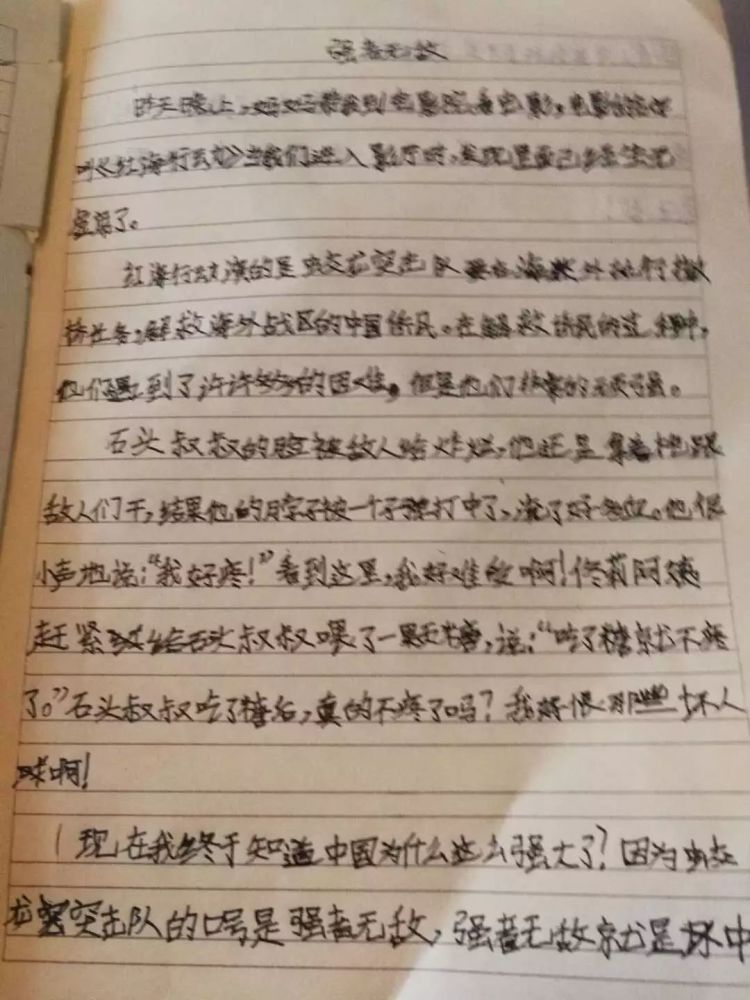 强者无敌
昨天晚上，妈妈带我到电影院看电影，电影的名字
叫《红海行动》当我们进入影厅时，发现里面已经座无
虚席了。
红海行动演的是蛟龙突击队要在海外执行撤
侨任务，解救海外战区的中国侨民。在解救侨民的过程中，
他们遇到了许许多多的困难，但是他们非常的顽强。
石头叔叔的脸被敌人给炸烂，他还是拿着枪跟
敌人们干，结果他的脖子被一个子弹打中了，流了好多血。他很
小声地说：“我好疼！”看到这里，我好难受啊！佟莉阿姨
赶紧给石头叔叔喂了一颗糖，说：“吃了糖就不疼
了。”石头叔叔吃了糖后，真的不疼了吗？我好恨那些坏人
啊！
现在我终于知道中国为什么这么强大了？因为蛟
龙突击队的口号是强者无敌，强者无敌就是中